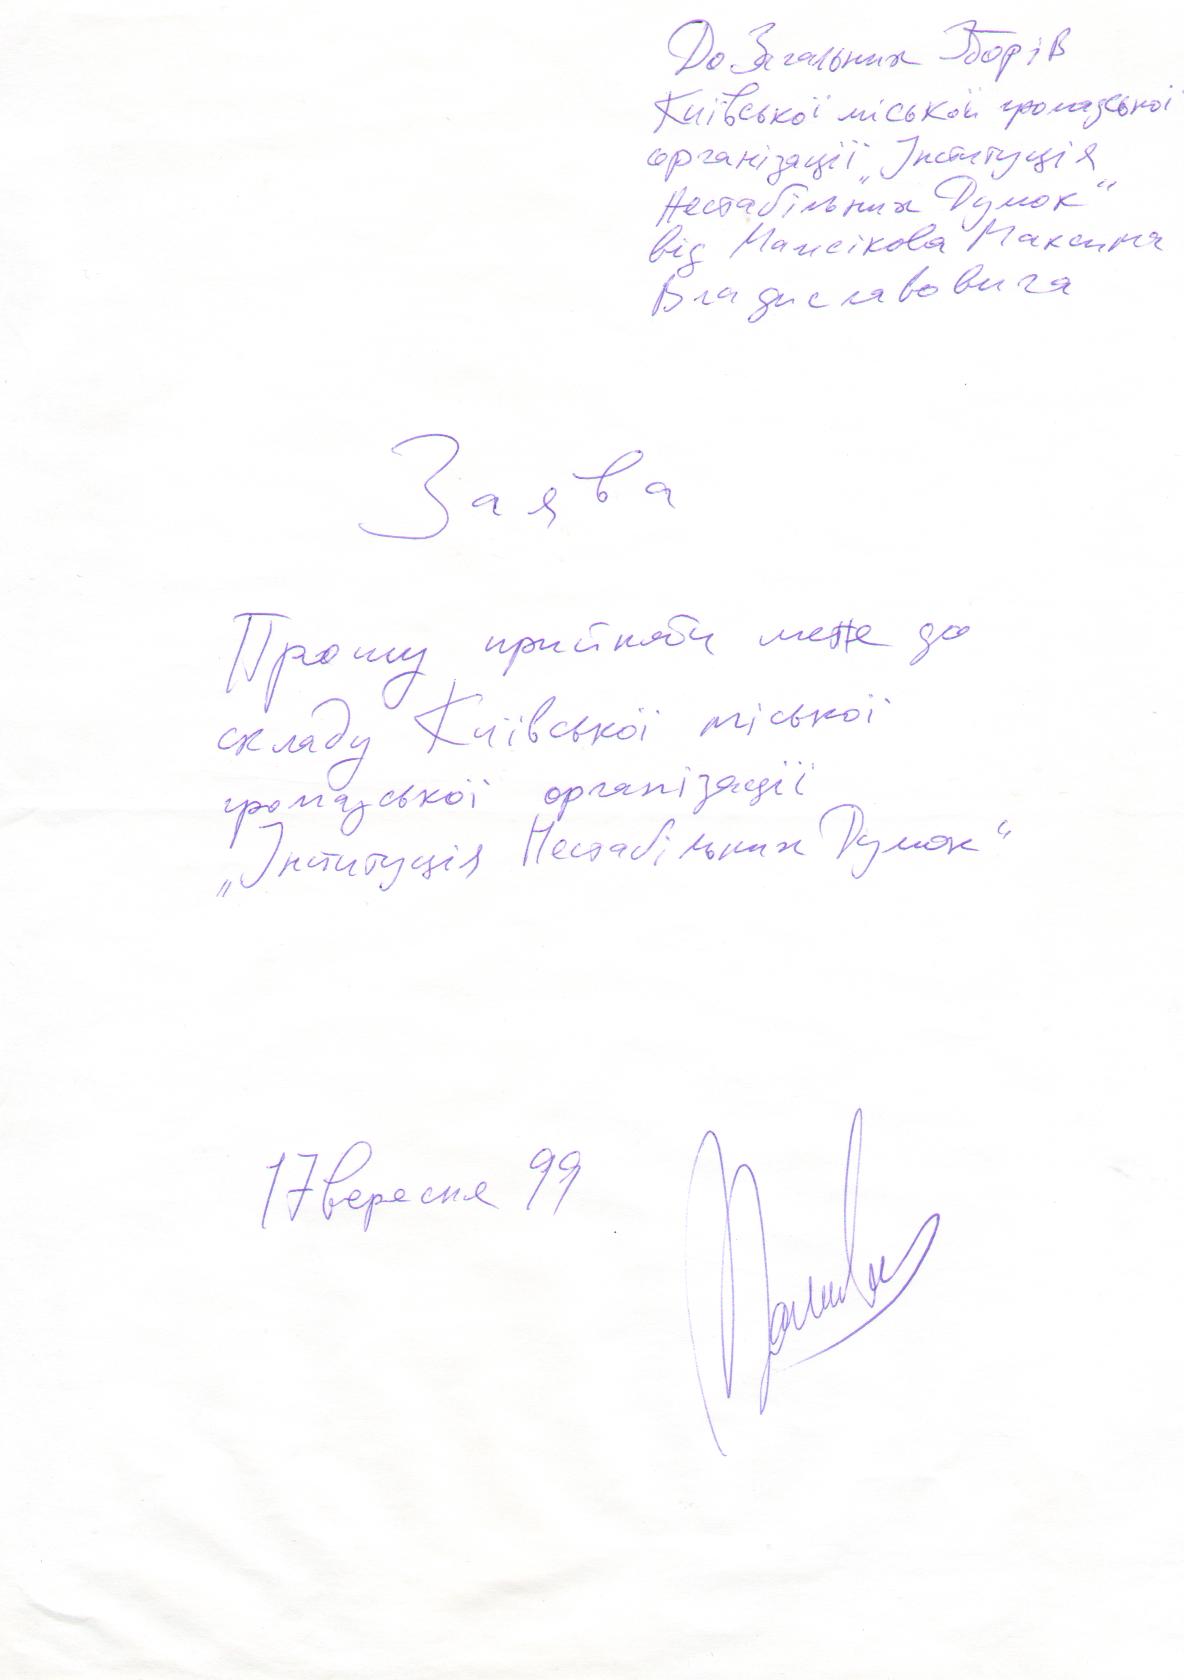 До Загальних Зборів
Київської міської громадської
організації „Інституція
Нестабільних Думок“
від Максима
Владиславовича
Заява
Прошу прийняти мене до
складу Київської міської
громадської організації
„Інституція Нестабільних Думок“
17 вересня 99